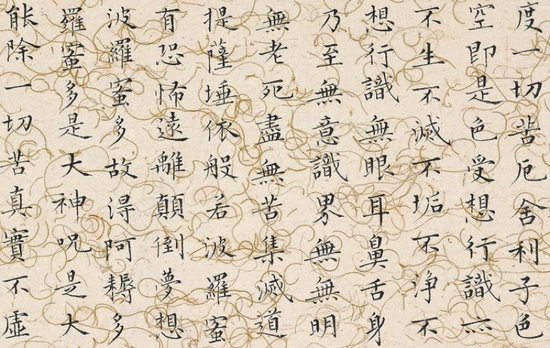 度一切苦厄舍利子色
空即是色受想行識亦
不生不滅不垢不净不
想行識無眼耳鼻舌身
乃至無意識界無無明
無老死盡無苦集滅道
提薩埵依般若波羅蜜
有恐怖遠離顛倒夢想
波羅蜜多故得阿耨多
羅蜜多是大神呪是大
能除一切苦真實不虛